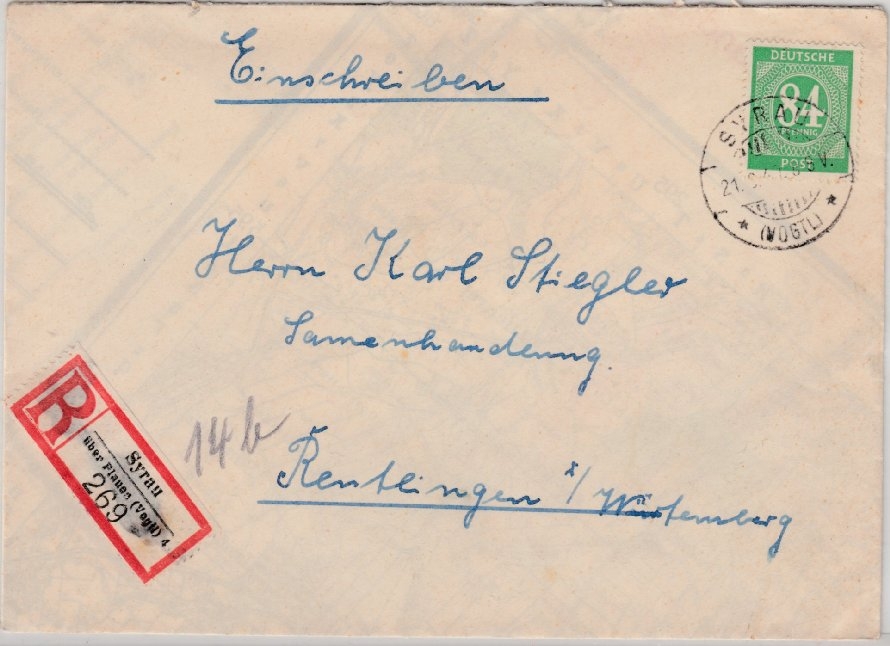 Einschreiben
DEUTSCHE
84
PFENNIG
POST
SYRAU
(VOGTL)
Herrn Karl Stiegler
Samenhandenng.
14b
Rentlingen i/ Würtemberg
R
Syrau
über Plauen (Vogtl) 4
269